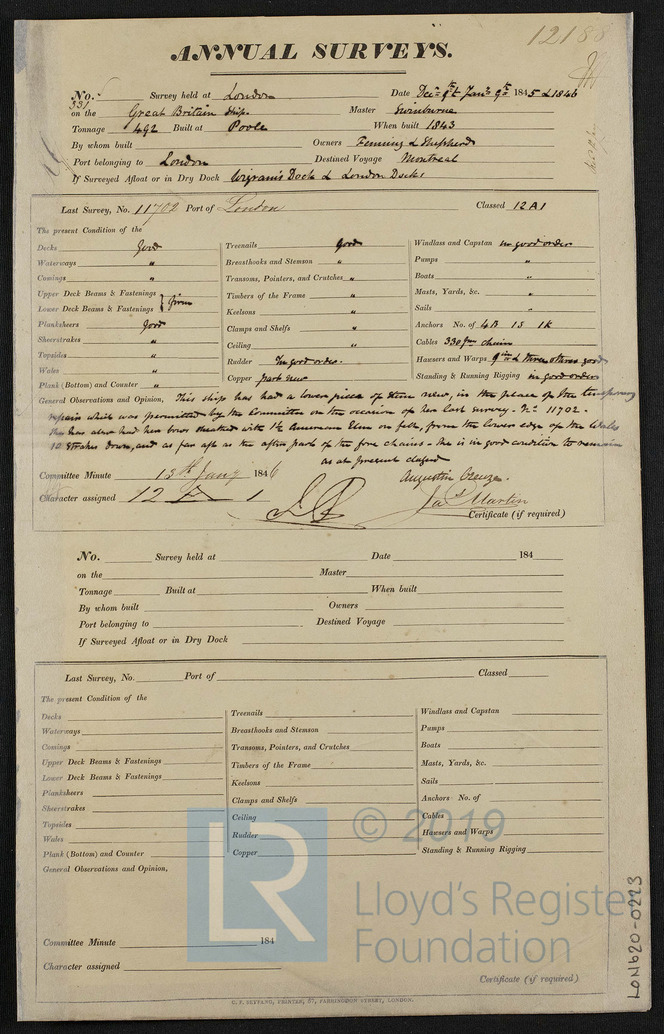 12188
ANNUAL SURVEYS.
No. 331 Survey held at London Date Decr 9th Jany 9th 1845 & 1846
on the Great Britain Ship. Master Swinburne
Tonnage 492 Built at Poole When built 1843
By whom built Owners Fleming & Shepherd
Port belonging to London Destined Voyage Montreal
If Surveyed Afloat or in Dry Dock Wigram's Dock & London Docks
Last Survey, No. 11702 Port of London Classed 12 A1
The present Condition of the
Decks Good
Waterways "
Comings "
Upper Deck Beams & Fastenings
Lower Deck Beams & Fastenings } firm
Planksheers Good
Sheerstrakes "
Topsides "
Wales "
Plank (Bottom) and Counter "
Treenails good
Breasthooks and Stemson "
Transoms, Pointers, and Crutches "
Timbers of the Frame "
Keelsons "
Clamps and Shelfs "
Ceiling "
Rudder In good order.
Copper part new
Windlass and Capstan in good order
Pumps "
Boats "
Masts, Yards, &c. "
Sails "
Anchors No. of 4B 1S 1K
Cables 330 fms chain
Hawsers and Warps 9 in & three others good
Standing & Running Rigging in good order
General Observations and Opinion, This ship has had a lower piece of stem new, in the place of the temporary
repairs which was permitted by the Committee on the occasion of her last survey - No. 11702.
She has also had her bows sheathed with 1½ American Elm on felt, from the lower edge of the Wales
10 Strakes down, and as far aft as the after part of the fore chains - She is in good condition to remain
as at present classed
Committee Minute 13th Jany 1846 Augustin Creuze.
Character assigned 12 A 1 Jas Martin
Certificate (if required)
No. Survey held at Date 184
on the Master
Tonnage Built at When built
By whom built Owners
Port belonging to Destined Voyage
If Surveyed Afloat or in Dry Dock
Last Survey, No. Port of Classed
The present Condition of the
Decks
Waterways
Comings
Upper Deck Beams & Fastenings
Lower Deck Beams & Fastenings
Planksheers
Sheerstrakes
Topsides
Wales
Plank (Bottom) and Counter
Treenails
Breasthooks and Stemson
Transoms, Pointers, and Crutches
Timbers of the Frame
Keelsons
Clamps and Shelfs
Ceiling
Rudder
Copper
Windlass and Capstan
Pumps
Boats
Masts, Yards, &c.
Sails
Anchors No. of
Cables
Hawsers and Warps
Standing & Running Rigging
General Observations and Opinion,
Committee Minute 184
Character assigned
Certificate (if required)
C. F. SEYFANG, PRINTER, 57, FARRINGDON STREET, LONDON.
LR
© 2019
Lloyd's Register
Foundation
LON620-0223